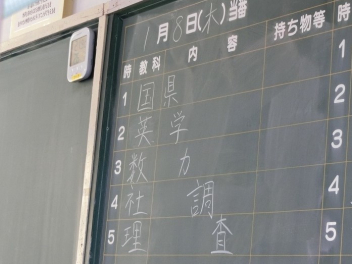 1月8日(木)当番
時 教科 内容 持ち物等 時
1 国 県 1
2 英 学 2
3 数 力 3
4 社 調 4
5 理 査 5